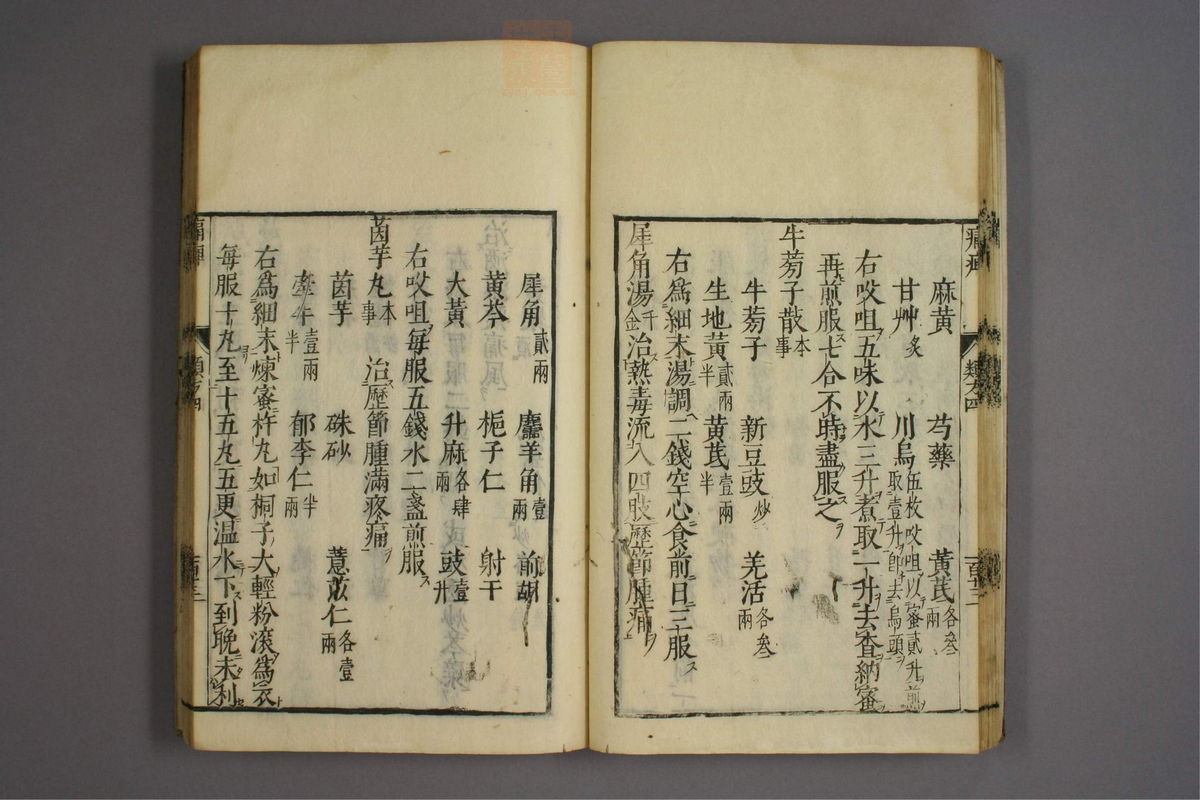 麻黄 芍藥 黄芪各叁兩
甘艸炙 川烏伍枚㕮咀以蜜貳升煎取壹升即去烏頭
右㕮咀五味以水三升煮取一升去査納蜜
再煎服七合不時盡服之
牛蒡子散本事
牛蒡子 新豆豉炒 羌活各叁兩
生地黄貳兩半 黄芪壹兩半
右爲細末湯調二錢空心食前日三服
犀角湯千金 治熱毒流入四肢歷節腫痛
犀角貳兩 麢羊角壹兩 前胡
黄芩 梔子仁 射干
大黄 升麻各肆兩 豉壹升
右㕮咀每服五錢水二盞煎服
茵芋丸本事 治歷節腫滿疼痛
茵芋 硃砂 薏苡仁各壹兩
牽牛壹兩半 郁李仁半兩
右爲細末煉蜜杵丸如桐子大輕粉滚爲衣
每服十丸至十五丸五更温水下到晚未利
類方四